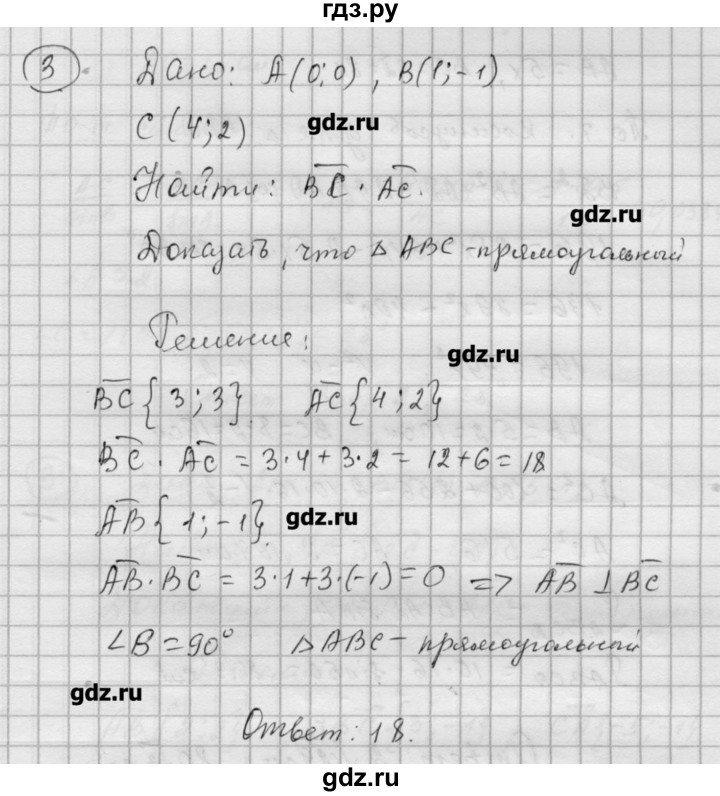 гдз.ру
3. Дано: A(0;0), B(1;-1)
C(4;2)
gdz.ru
Найти: BC · AC.
gdz.ru
Доказать, что △ ABC - прямоугольный
Решение:
gdz.ru
BC {3;3} AC {4;2}
BC · AC = 3·4+3·2 = 12+6=18
AB {1;-1}.
gdz.ru
AB·BC = 3·1+3·(-1)=0 => AB ⊥ BC
∠B=90° △ABC - прямоугольный
gdz.ru
Ответ: 18.
gdz.ru